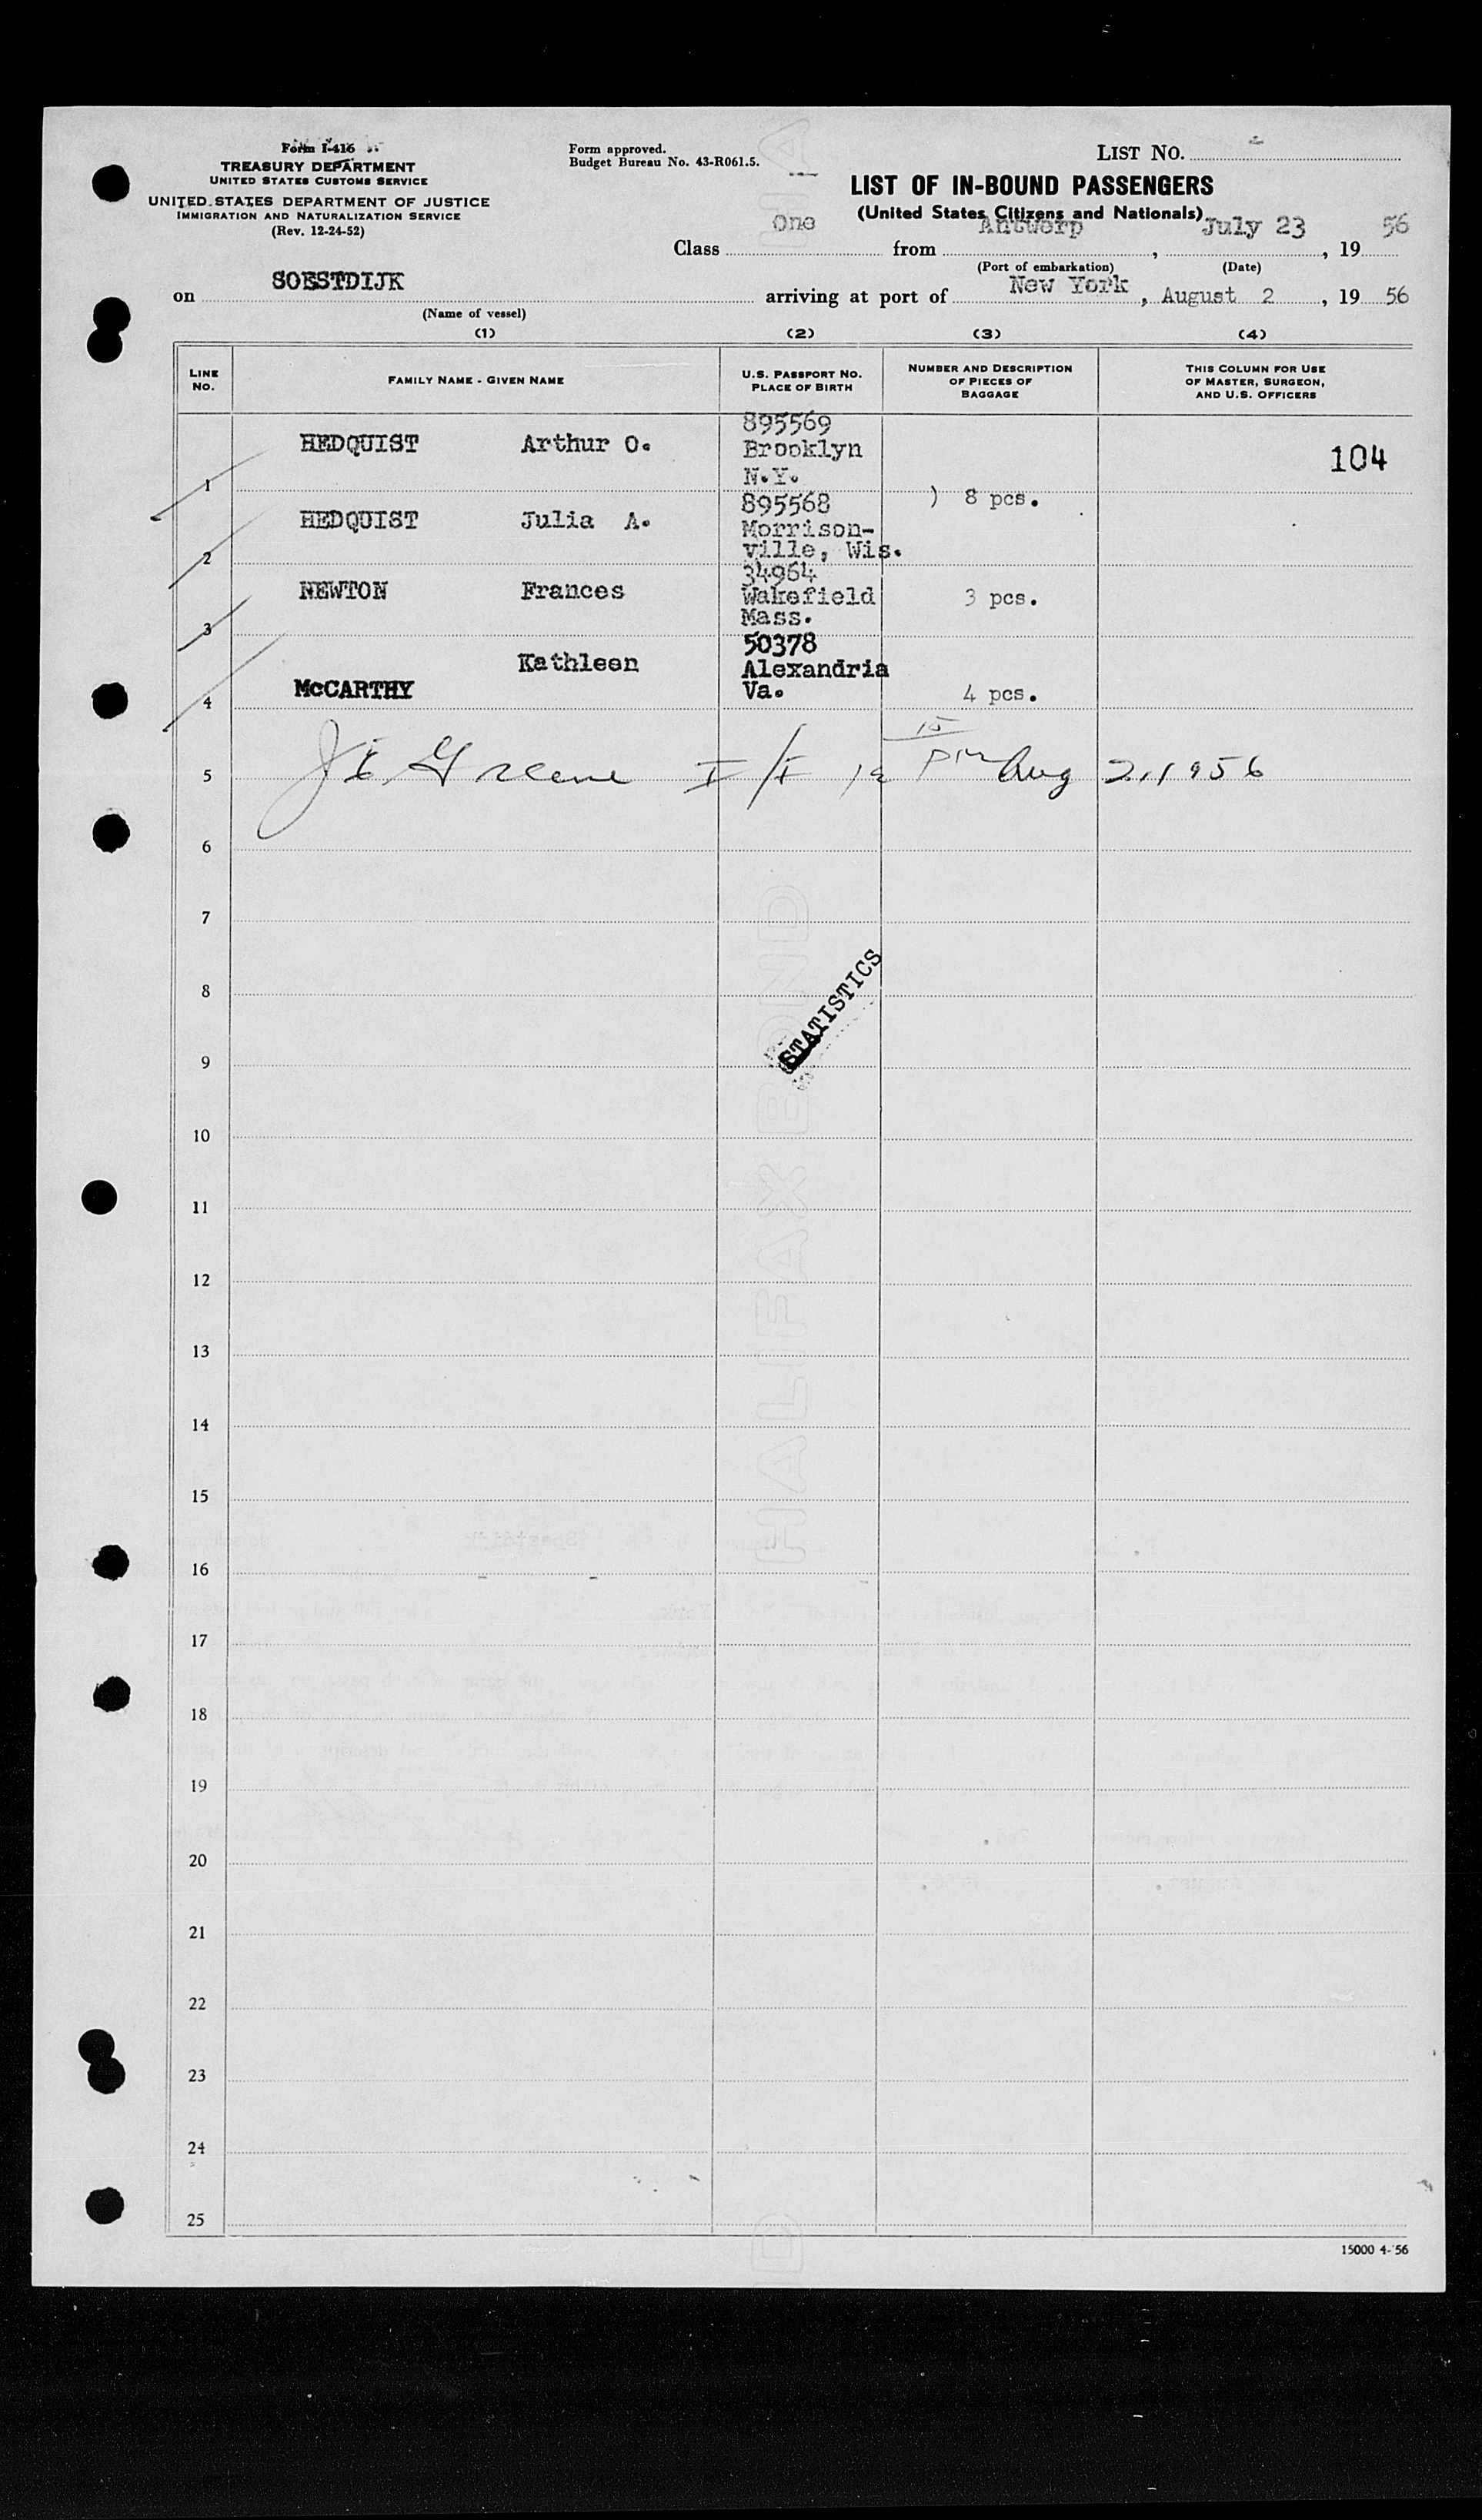 Form I-416
TREASURY DEPARTMENT
UNITED STATES CUSTOMS SERVICE
UNITED STATES DEPARTMENT OF JUSTICE
IMMIGRATION AND NATURALIZATION SERVICE
(Rev. 12-24-52)
Form approved.
Budget Bureau No. 43-R061.5.
LIST NO.
LIST OF IN-BOUND PASSENGERS
(United States Citizens and Nationals)
Class One from Antwerp, July 23, 19 56
(Port of embarkation) (Date)
on SOESTDIJK arriving at port of New York, August 2, 19 56
(Name of vessel)
(1) (2) (3) (4)
LINE NO.
FAMILY NAME - GIVEN NAME
U.S. PASSPORT NO.
PLACE OF BIRTH
NUMBER AND DESCRIPTION
OF PIECES OF
BAGGAGE
THIS COLUMN FOR USE
OF MASTER, SURGEON,
AND U.S. OFFICERS
895569
HEDQUIST Arthur O. Brooklyn 104
N.Y.
1
895568 ) 8 pcs.
HEDQUIST Julia A. Morrison-
ville, Wis.
2
34964
NEWTON Frances Wakefield 3 pcs.
Mass.
3
50378
Kathleen Alexandria
McCARTHY Va. 4 pcs.
4
15
5 Greene I/I 12 PM Aug 2, 1956
6
7
8
STATISTICS
9
10
11
12
13
14
15
16
17
18
19
20
21
22
23
24
25
15000 4-'56
HALIFAX BOND